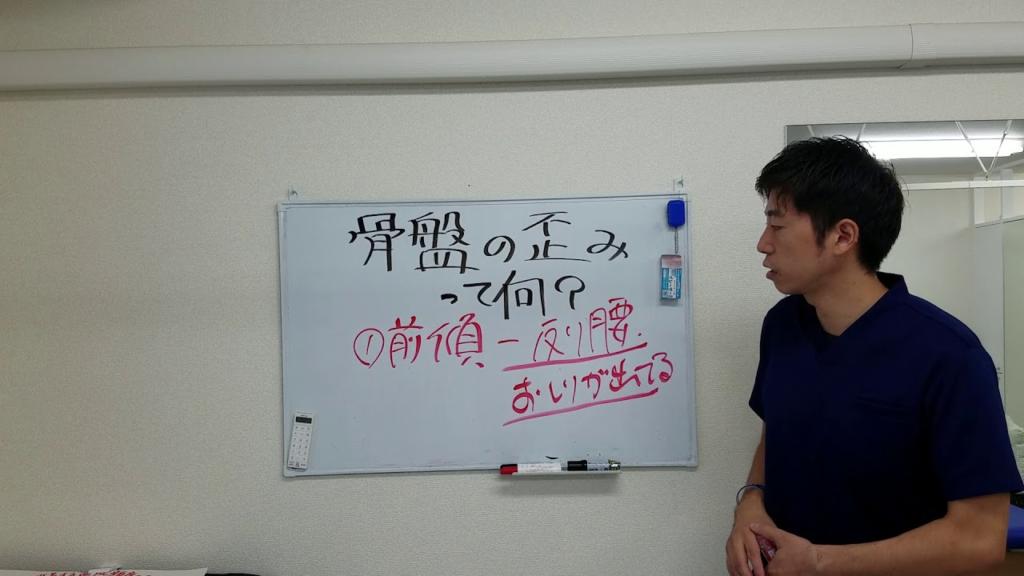 骨盤の歪み
って何?
①前傾ー反り腰
おしりが出てる